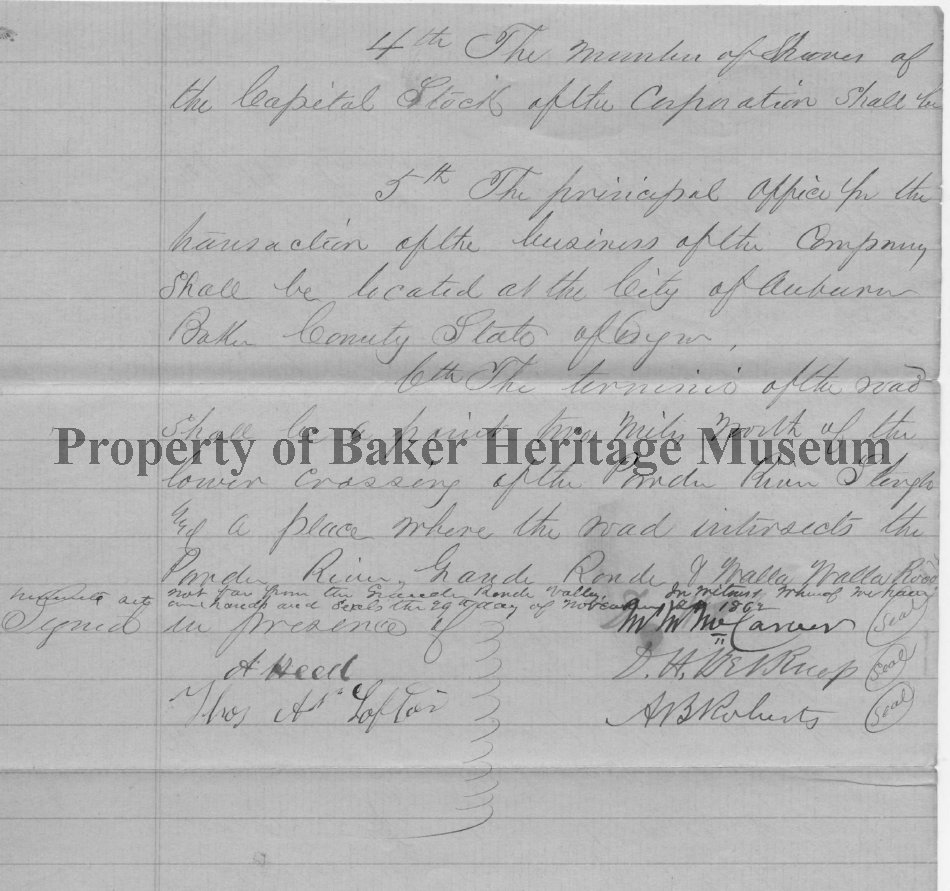 4th The number of Shares of
the Capital Stock of the Corporation Shall be
5th The principal office for the
transaction of the business of the Company
Shall be located at the City of Auburn
Baker County State of Oregn,
6th The terminis of the road
Shall be a point two Miles North of the
Property of Baker Heritage Museum
lower crossing of the Powder River Slough
& a place where the road intersects the
Powder River, Grande Ronde & Walla Walla Road
not far from the Grande Ronde Valley. In Witness Whereof we have
hereunto set our hands and Seals the 29th day of November 1862
Signed in presence of M M McCarver (Seal)
A Heed D. H. Belknap (Seal)
Thos At Lofton A B Roberts (Seal)